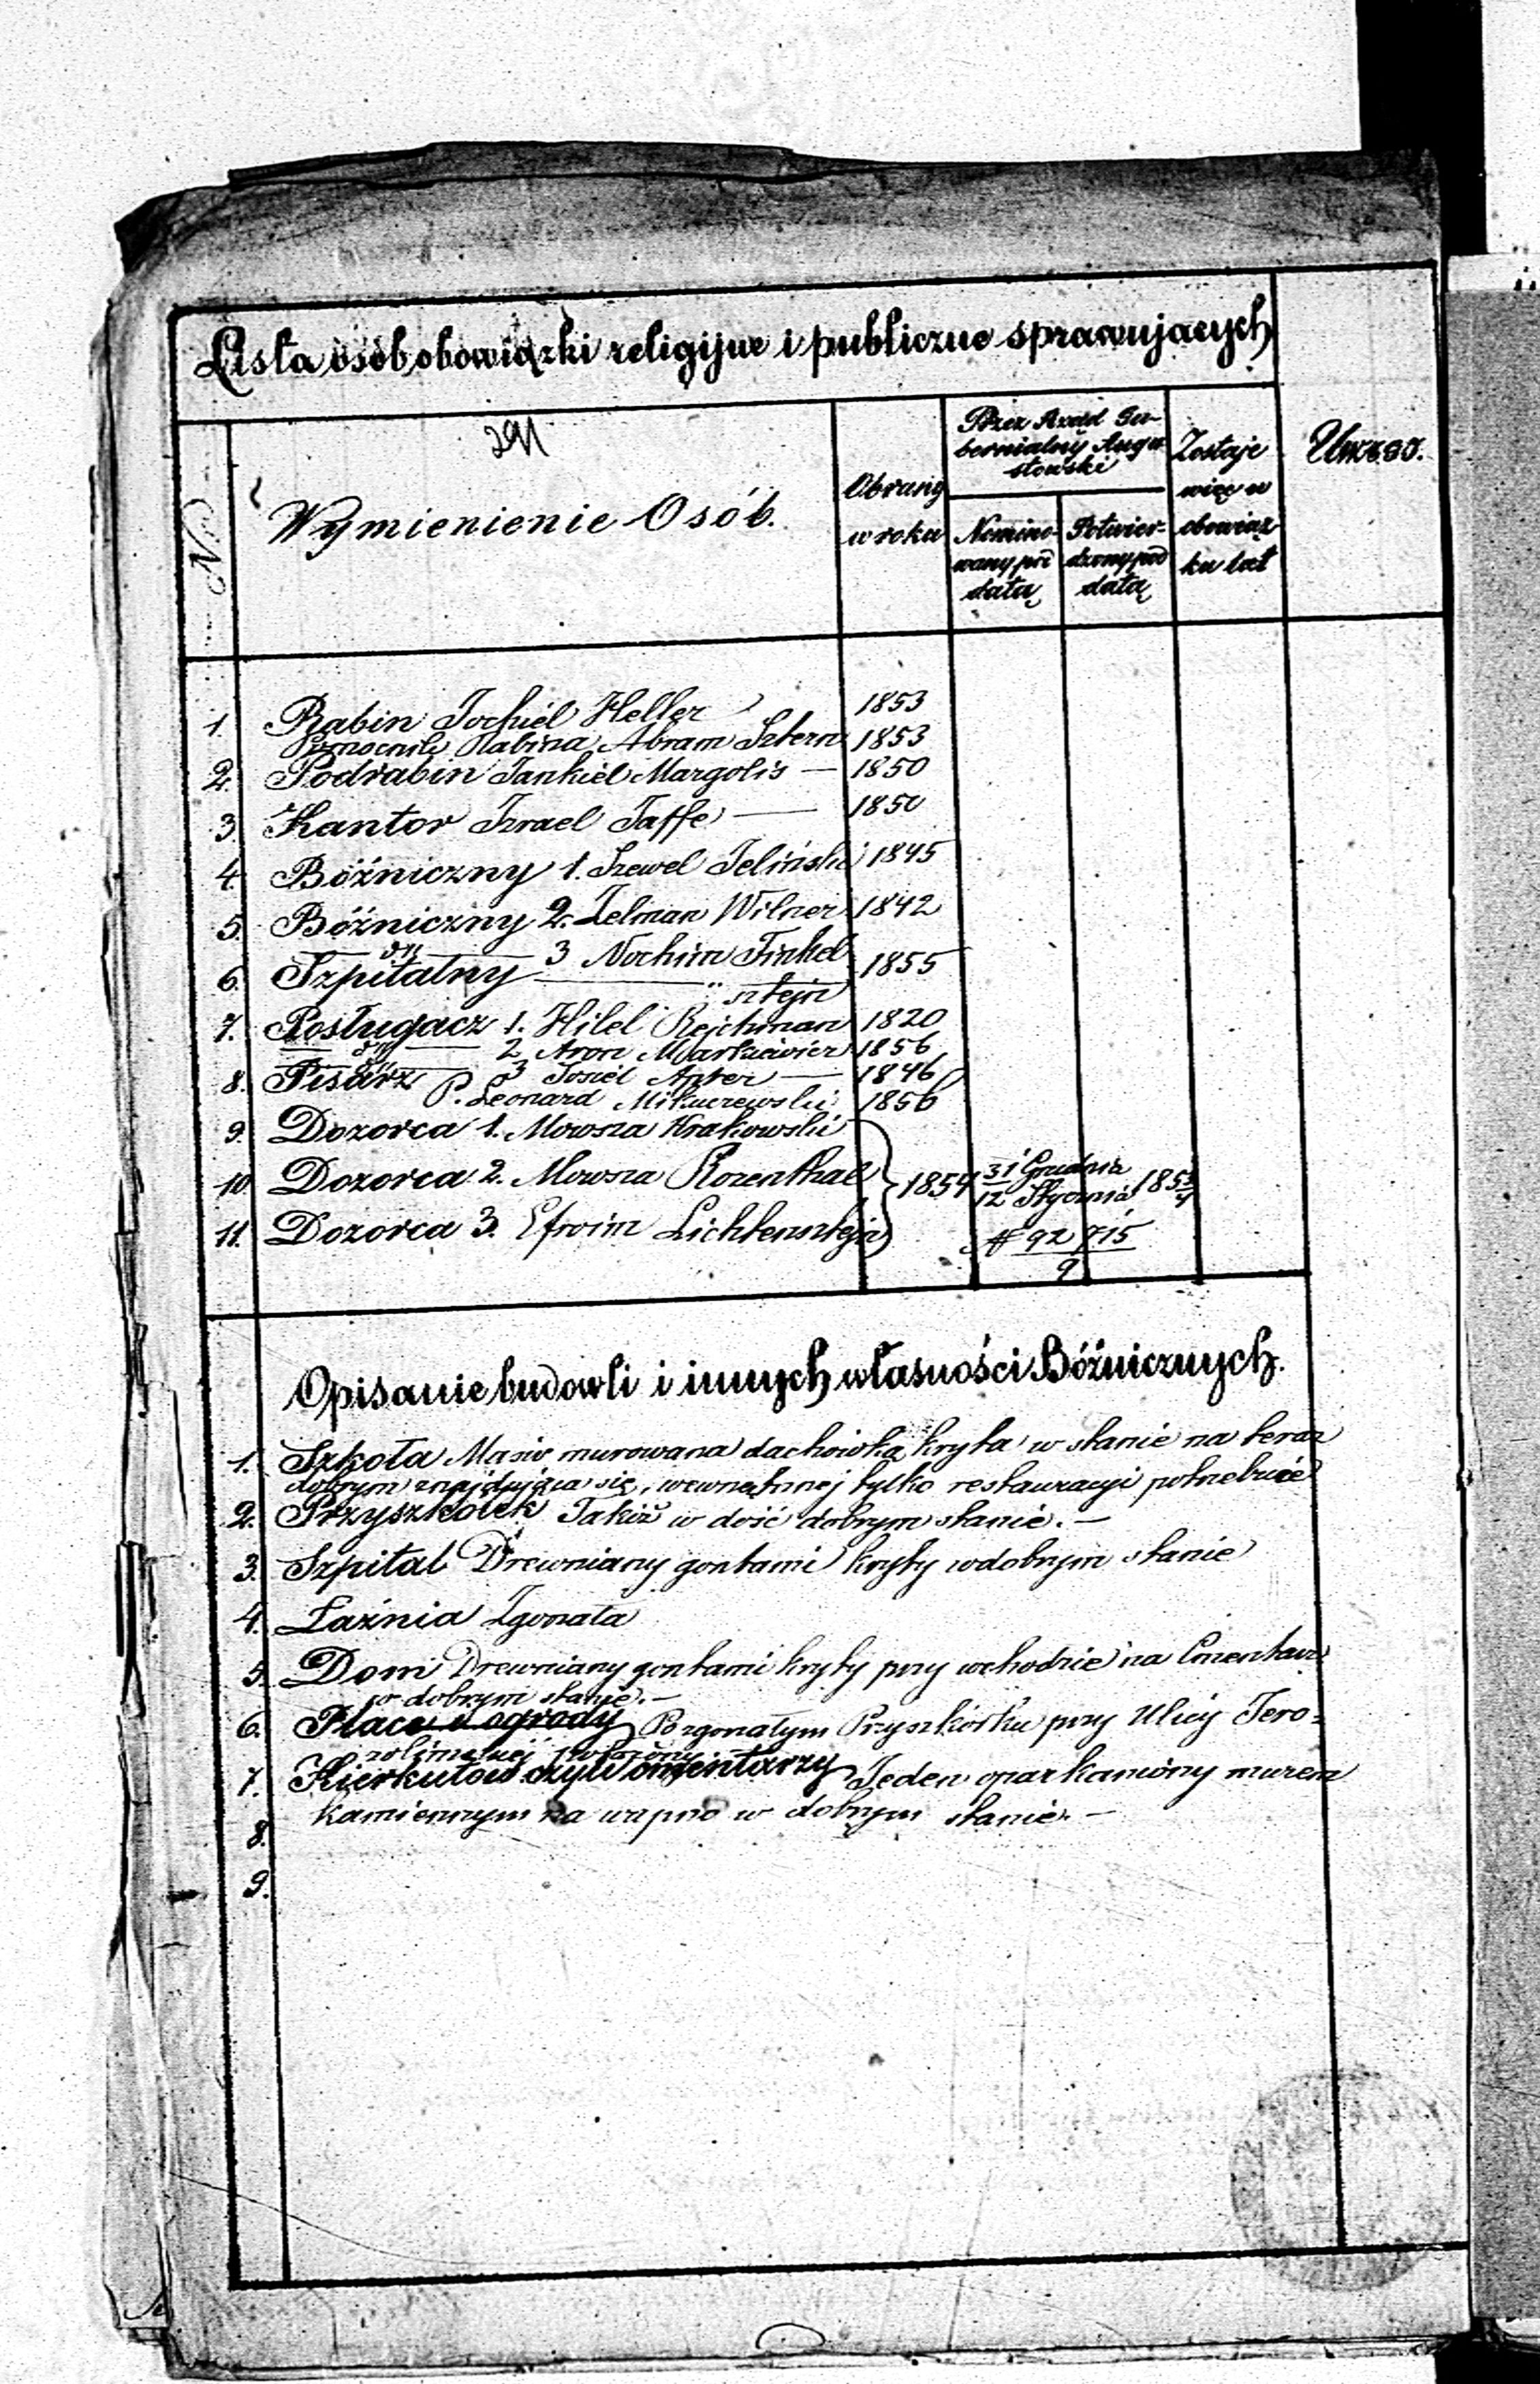 Lista osób obowiązki religijne i publiczne sprawujących
Nr
Wymienienie Osób.
Obrany w roku
Przez Rząd Gubernialny Augustowski
Nominowany pod datą
Potwierdzony pod datą
Zostaje więc w obowiązku lat
1. Rabin Jochiel Heller 1853
Pomocnik Rabina Abram Sztern 1853
2. Podrabin Jankiel Margolis — 1850
3. Kantor Izrael Jaffe — 1850
4. Bóźniczny 1. Szewel Jeliński 1845
5. Bóźniczny 2. Zelman Wilner 1842
dy 3 Nochim Finkel
6. Szpitalny — " sztejn 1855
7. Posługacz 1. Hilel Rejchman 1820
— dy — 2 Aron Markiewicz 1856
dy 3 Josiel Apter — 1846
8. Pisarz P. Leonard Mikuczewski 1856
9. Dozorca 1. Mowsza Krakowski
10. Dozorca 2. Mowsza Rozenthal 1854 31 Grudnia / 12 Stycznia 1853/4
11. Dozorca 3. Efroim Lichtensztejn # 92 715 / 9
Opisanie budowli i innych własności Bóźnicznych.
1. Szkoła Masiv murowana dachówką kryta w stanie na teraz
dobrym znajdująca się, wewnętrznej tylko restauracyi potrzebuie
2. Przyszkołek Takiż w dość dobrym stanie. —
3. Szpital Drewniany gontami kryty w dobrym stanie
4. Łaźnia Zgorzała
5. Dom Drewniany gontami kryty przy wchodzie na Cmentarz
w dobrym stanie. —
6. Place i ogrody Po zgorzałym Przyszkółku przy Ulicy Jero-
zolimskiej położony
7. Kierkutów czyli cmentarzy Jeden oparkaniony murem
kamiennym na wapno w dobrym stanie. —
8.
9.